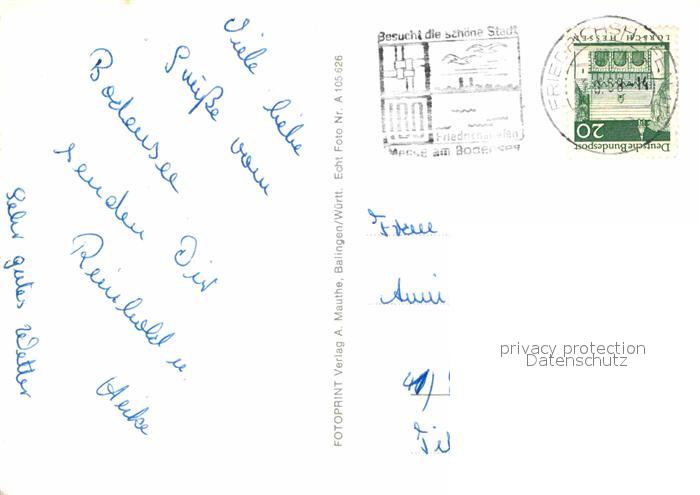 Viele liebe
Grüße vom
Bodensee
senden Dir
Reinhold u.
Heike
Sehr gutes Wetter
FOTOPRINT Verlag A. Mauthe, Balingen/Württ. Echt Foto Nr. A 105 626
Besucht die schöne Stadt
Friedrichshafen
Messe am Bodensee
FRIEDRICHSH
LORSCH HESSEN
20
Deutsche Bundespost
Frau
Anni
41/
privacy protection
Datenschutz